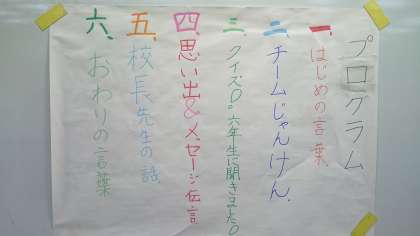 プログラム
一、はじめの言葉、
二、チームじゃんけん、
三、クイズ○。六年生に聞きました○
四、思い出&メッセージ伝言
五、校長先生の話、
六、おわりの言葉